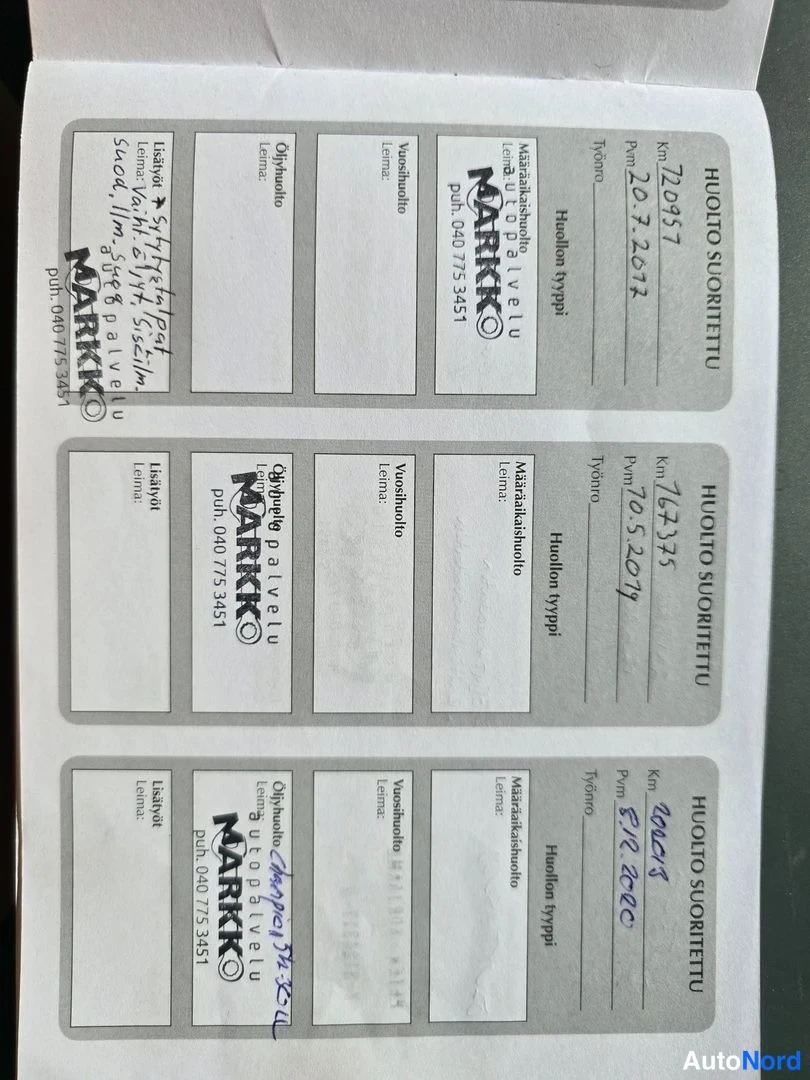 HUOLTO SUORITETTU
Km 120957
Pvm 20.7.2017
Työnro
Huollon tyyppi
Määräaikaishuolto
Leima:
autopalvelu
MARKKO
puh. 040 775 3451
Vuosihuolto
Leima:
Öljyhuolto
Leima:
Lisätyöt Sytytystulpat
Leima: Vaiht. öljyt, Sisäilm.
suod, Ilm.
autopalvelu
MARKKO
puh. 040 775 3451
HUOLTO SUORITETTU
Km 167375
Pvm 10.5.2019
Työnro
Huollon tyyppi
Määräaikaishuolto
Leima:
Vuosihuolto
Leima:
Öljyhuolto
Leima:
autopalvelu
MARKKO
puh. 040 775 3451
Lisätyöt
Leima:
HUOLTO SUORITETTU
Km
Pvm 8.12.2020
Työnro
Huollon tyyppi
Määräaikaishuolto
Leima:
Vuosihuolto
Leima:
Öljyhuolto Champion 5W-30
Leima:
autopalvelu
MARKKO
puh. 040 775 3451
Lisätyöt
Leima:
AutoNord